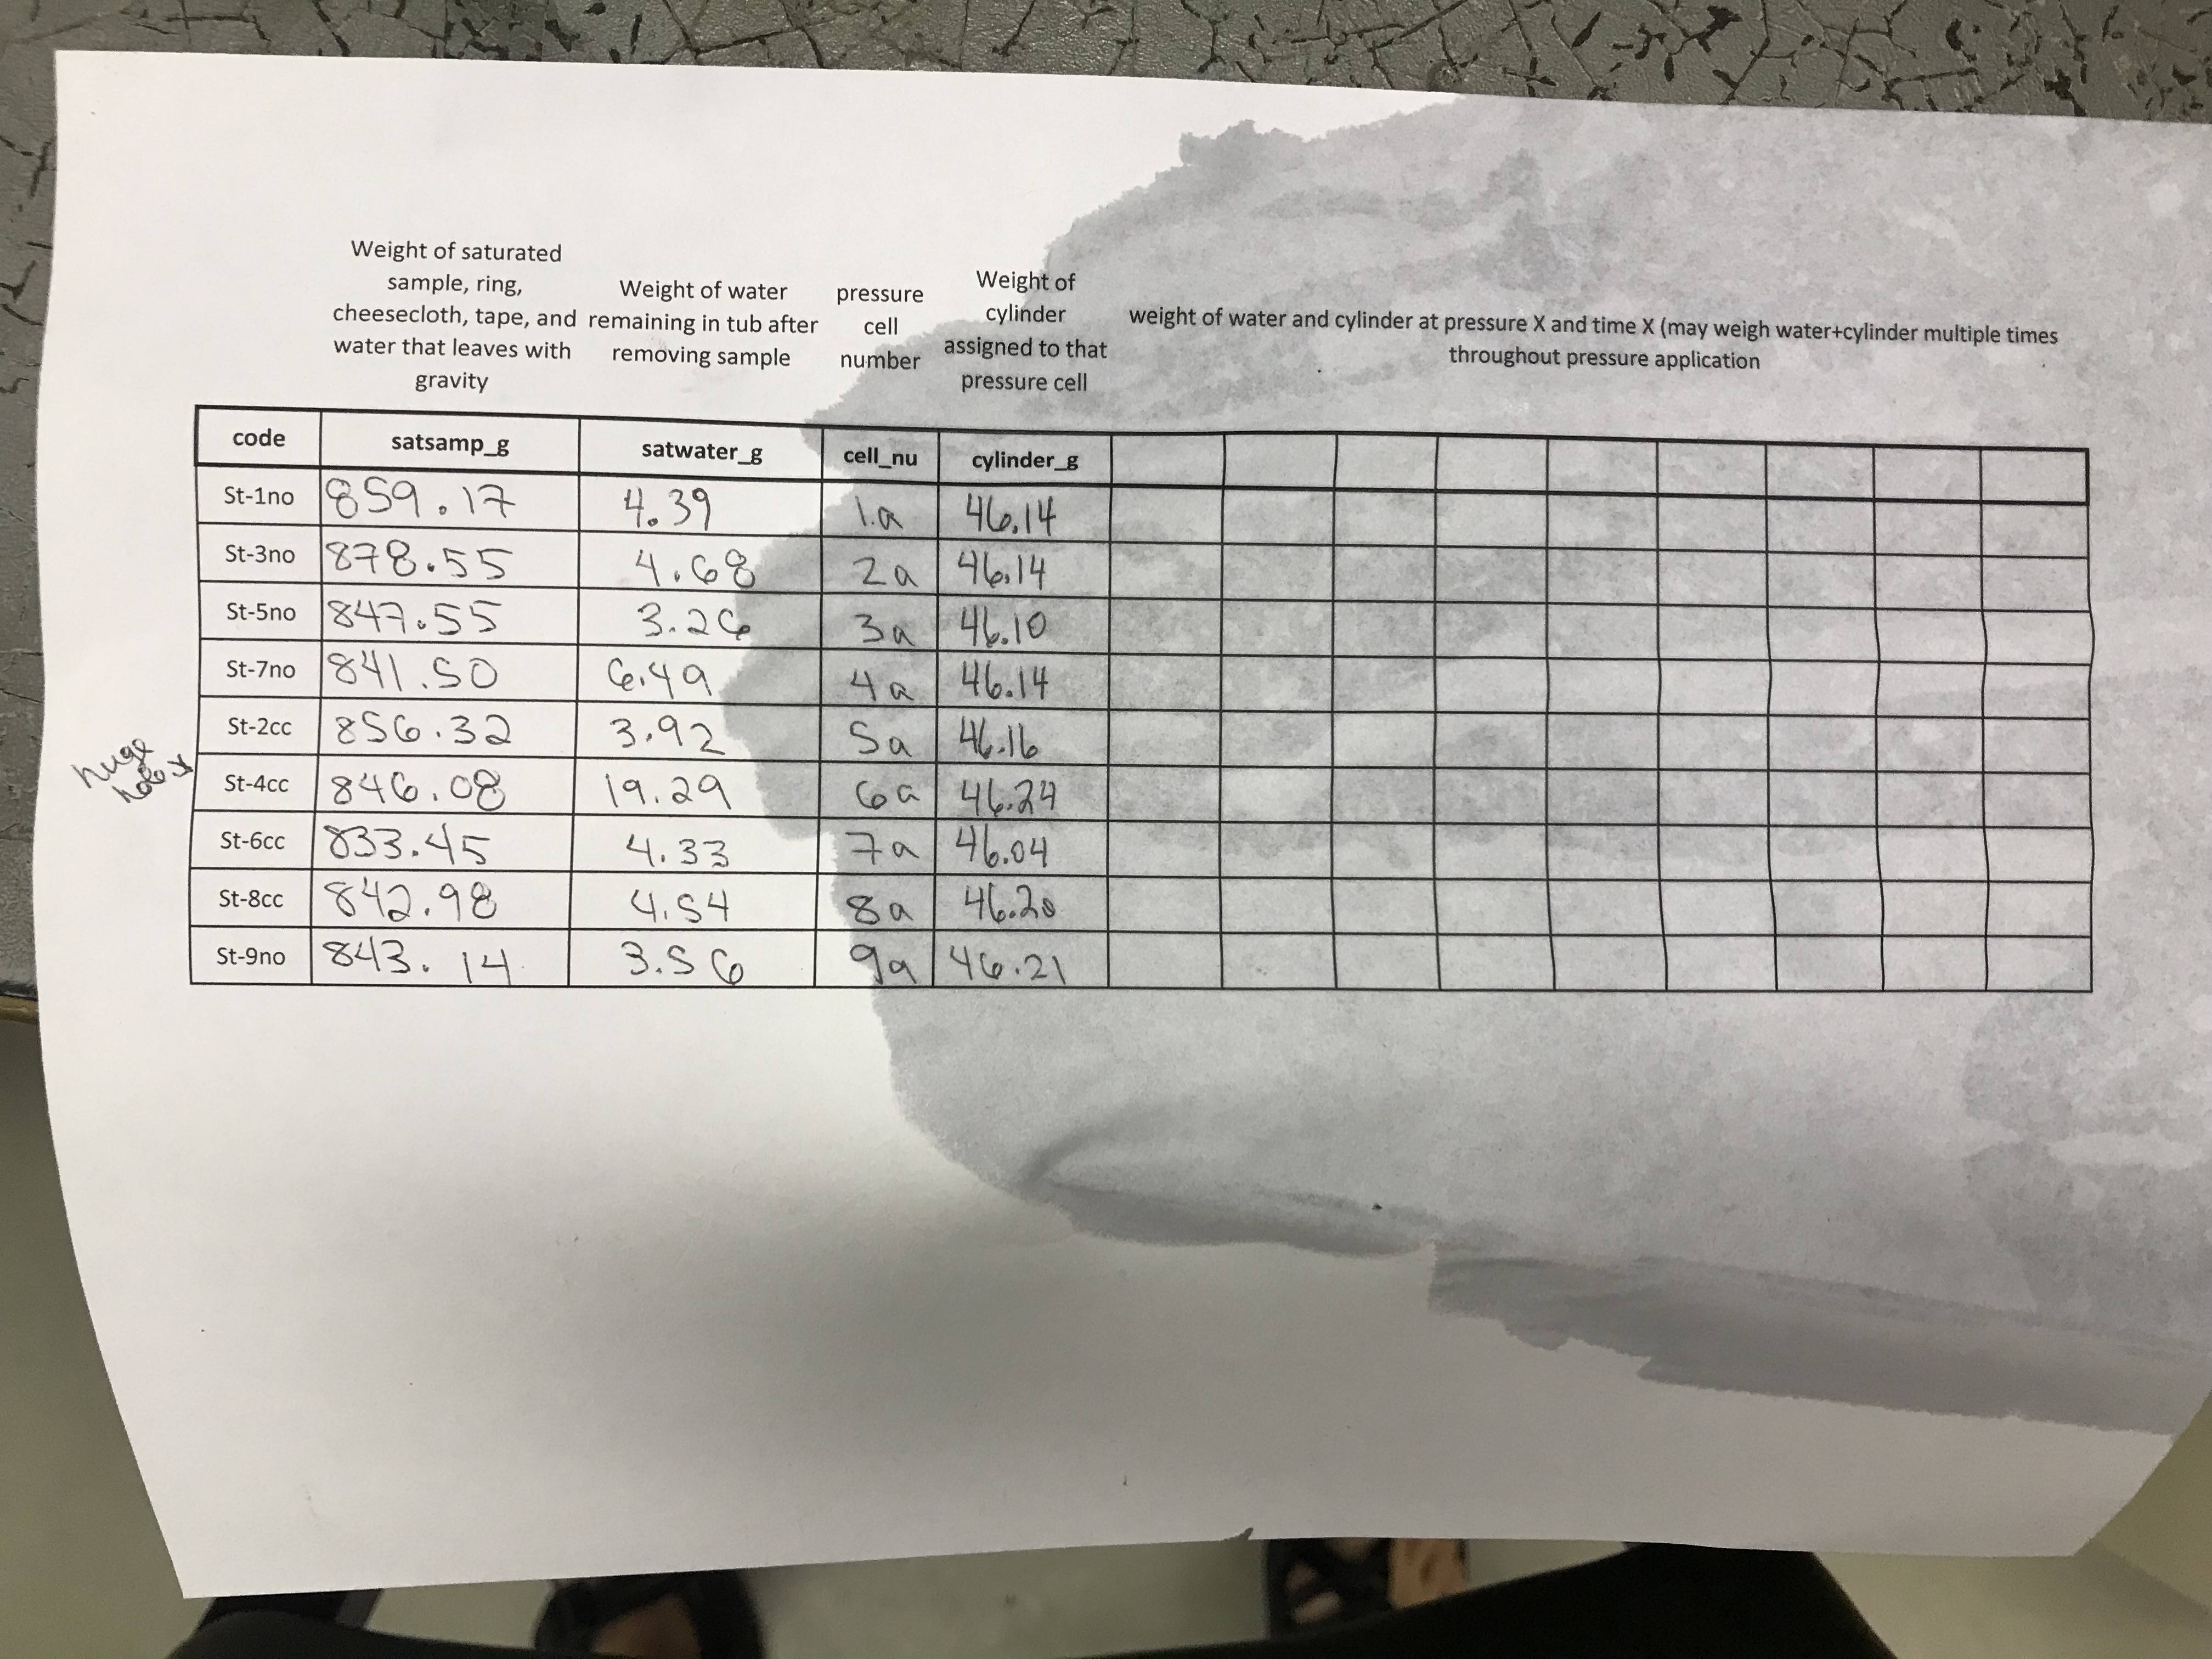 Weight of saturated
sample, ring,
cheesecloth, tape, and
water that leaves with
gravity
Weight of water
remaining in tub after
removing sample
pressure
cell
number
Weight of
cylinder
assigned to that
pressure cell
weight of water and cylinder at pressure X and time X (may weigh water+cylinder multiple times
throughout pressure application
code satsamp_g satwater_g cell_nu cylinder_g
St-1no 859.17 4.39 1a 46.14
St-3no 878.55 4.68 2a 46.14
St-5no 847.55 3.26 3a 46.10
St-7no 841.50 6.49 4a 46.14
St-2cc 856.32 3.92 5a 46.16
huge
hole
St-4cc 846.08 19.29 6a 46.24
St-6cc 833.45 4.33 7a 46.04
St-8cc 842.98 4.54 8a 46.20
St-9no 843.14 3.56 9a 46.21